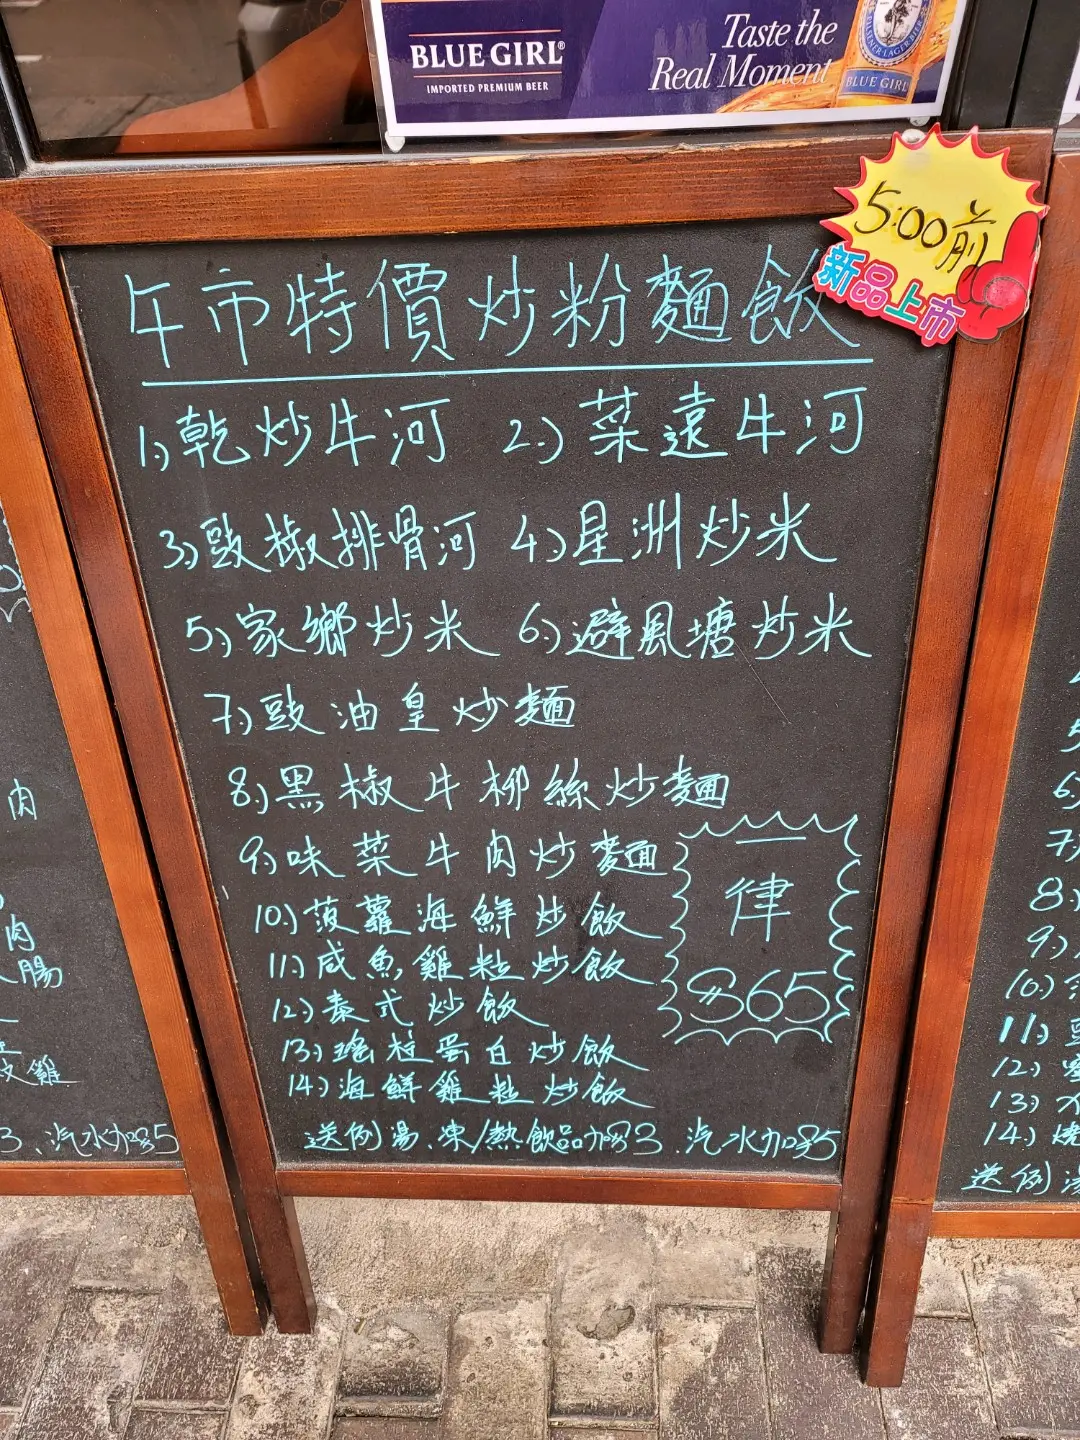 BLUE GIRL®
IMPORTED PREMIUM BEER
Taste the
Real Moment
BLUE GIRL
5:00前
新品上市
午市特價炒粉麵飯
1,)乾炒牛河 2.)菜遠牛河
3,)豉椒排骨河 4.)星洲炒米
5,)家鄉炒米 6,)避風塘炒米
7,)豉油皇炒麵
8,)黑椒牛柳絲炒麵
9,)味菜牛肉炒麵
10.)菠蘿海鮮炒飯
11.)咸魚雞粒炒飯
12.)泰式炒飯
13.)瑤柱蛋白炒飯
14.)海鮮雞粒炒飯
一律
$65
送例湯、凍/熱飲品加$3、汽水加$5
肉
肉
腸
雞
3、汽水加$5
5
6,)
7,)
8.)
9.)
10.)
11.)
12.)
13.)
14.)燒
送例湯